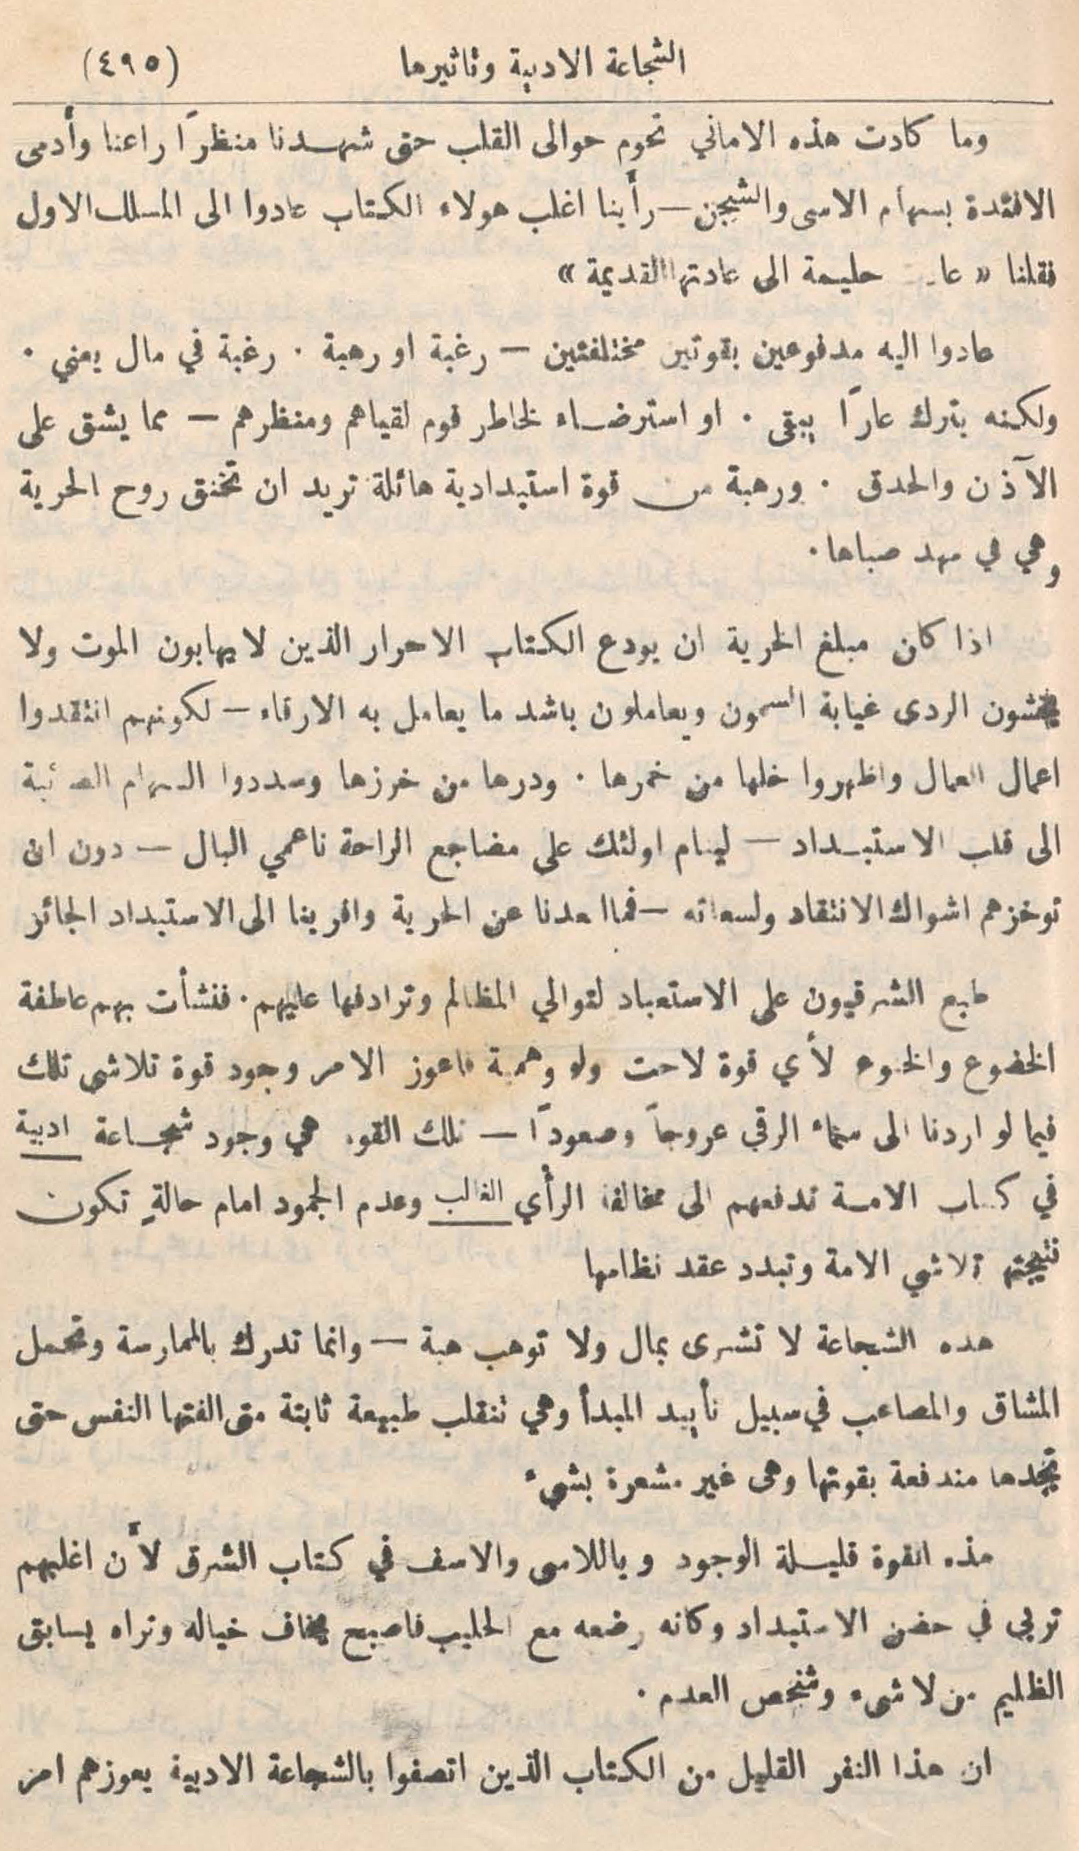 الشجاعة الادبية وتاثيرها (٤٩٥)
وما كادت هذه الاماني تحوم حوالى القلب حتى شهدنا منظرًا راعنا وأدمى
الافئدة بسهام الاسى والشجن – رأينا اغلب هولاء الكتاب عادوا الى المسلك الاول
فقلنا « حليمة الى عادتها القديمة »
عادوا اليه مدفوعين بقوتين مختلفتين – رغبة او رهبة . رغبة في مال يفني .
ولكنه يترك عارًا يبقى . او استرضاء لخاطر قوم لقياهم ومنظرهم – مما يشق على
الآذن والحدق . ورهبة من قوة استبدادية هائلة تريد ان تخنق روح الحرية
وهي في مهد صباها .
اذا كان مبلغ الحرية ان يودع الكتاب الاحرار الذين لا يهابون الموت ولا
يخشون الردى غيابة السجون ويعاملون باشد ما يعامل به الارقاء – لكونهم انتقدوا
اعمال العمال واظهروا خلها من خمرها . ودرها من خرزها وسددوا السهام الصائبة
الى قلب الاستبداد – لينام اولئك على مضاجع الراحة ناعمي البال – دون ان
توخزهم اشواك الانتقاد ولسعاته – فما ابعدنا عن الحرية واقربنا الى الاستبداد الجائر
طبع الشرقيون على الاستعباد لتوالي المظالم وترادفها عليهم . فنشأت بهم عاطفة
الخضوع والخنوع لأي قوة لاحت ولو وهمية فاعوز الامر وجود قوة تلاشي تلك
فيما لو اردنا الى سماء الرقي عروجاً وصعودًا – تلك القوة هي وجود شجاعة ادبية
في كتاب الامة تدفعهم الى مخالفة الرأي الغالب وعدم الجمود امام حالةٍ تكون
نتيجتها تلاشي الامة وتبدد عقد نظامها
هذه الشجاعة لا تشرى بمال ولا توهب هبة – وانما تدرك بالممارسة وتحمل
المشاق والمصاعب في سبيل تأييد المبدأ وهي تنقلب طبيعة ثابتة متى الفتها النفس حتى
تجدها مندفعة بقوتها وهى غير مشعرة بشيء
هذه القوة قليلة الوجود وياللاسى والاسف في كتاب الشرق لأن اغلبهم
تربى في حضن الاستبداد وكانه رضعه مع الحليب فاصبح يخاف خياله وتراه يسابق
الظليم من لا شيء وشخص العدم .
ان هذا النفر القليل من الكتاب الذين اتصفوا بالشجاعة الادبية يعوزهم امر